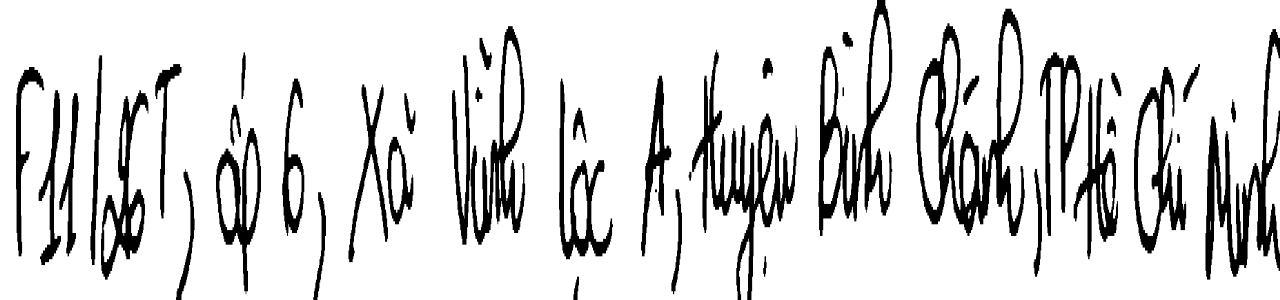 F11/28T, ấp 6, Xã Vĩnh Lộc A, Huyện Bình Chánh, TP Hồ Chí Minh